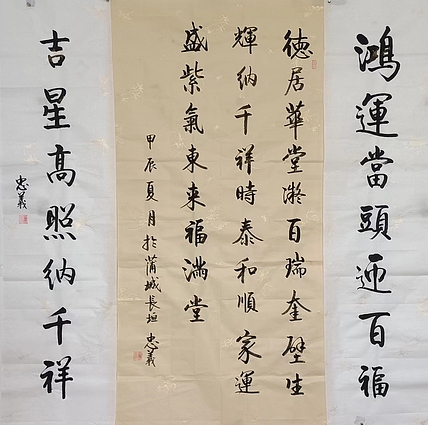 鴻運當頭迎百福
德居華堂凝百瑞奎壁生
輝納千祥時泰和順家運
盛紫氣東来福滿堂
甲辰夏月於蒲城長垣 忠義
吉星高照納千祥
忠義